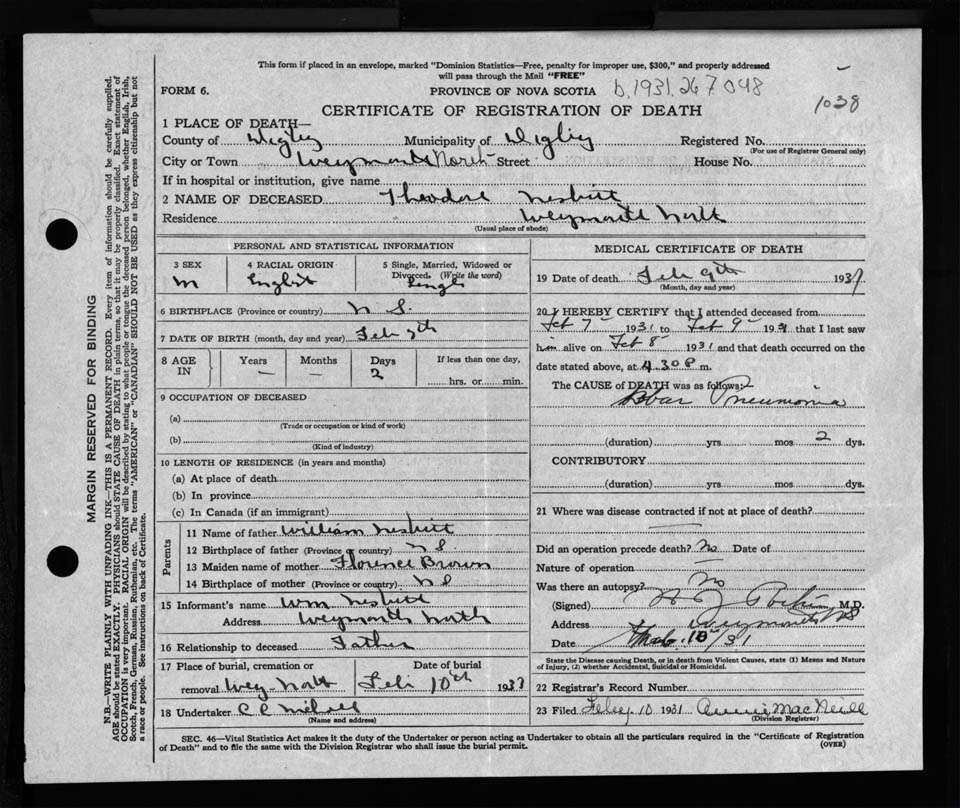 This form if placed in an envelope, marked "Dominion Statistics—Free, penalty for improper use, $300," and properly addressed
will pass through the Mail "FREE"
FORM 6.
PROVINCE OF NOVA SCOTIA
b.1931.267.048
1038
CERTIFICATE OF REGISTRATION OF DEATH
1 PLACE OF DEATH—
County of Digby Municipality of Digby Registered No.
(For use of Registrar General only)
City or Town Weymouth North Street House No.
If in hospital or institution, give name
2 NAME OF DECEASED Theodore Nesbitt
Residence Weymouth North
(Usual place of abode)
PERSONAL AND STATISTICAL INFORMATION
3 SEX
M
4 RACIAL ORIGIN
English
5 Single, Married, Widowed or
Divorced. (Write the word)
Single
6 BIRTHPLACE (Province or country) N S.
7 DATE OF BIRTH (month, day and year) Feb 7th
8 AGE
IN
Years
—
Months
—
Days
2
If less than one day,
hrs. or min.
9 OCCUPATION OF DECEASED
(a)
(Trade or occupation or kind of work)
(b)
(Kind of industry)
10 LENGTH OF RESIDENCE (in years and months)
(a) At place of death
(b) In province
(c) In Canada (if an immigrant)
Parents
11 Name of father William Nesbitt
12 Birthplace of father (Province or country) N S.
13 Maiden name of mother Florence Brown
14 Birthplace of mother (Province or country) N S
15 Informant's name Wm Nesbitt
Address Weymouth North
16 Relationship to deceased Father
17 Place of burial, cremation or
removal Wey-North
Date of burial
Feb 10th 1931
18 Undertaker C C
(Name and address)
MEDICAL CERTIFICATE OF DEATH
19 Date of death Feb 9th 1931
(Month, day and year)
20 I HEREBY CERTIFY that I attended deceased from
Feb 7 1931 to Feb 9 1931 that I last saw
him alive on Feb 8 1931 and that death occurred on the
date stated above, at 4.30 P m.
The CAUSE of DEATH was as follows:
Lobar Pneumonia
(duration) yrs mos 2 dys.
CONTRIBUTORY
(duration) yrs mos dys.
21 Where was disease contracted if not at place of death?
—
Did an operation precede death? No Date of
Nature of operation —
Was there an autopsy? No
(Signed) M.D.
Address Weymouth NS
Date 10 /31
State the Disease causing Death, or in death from Violent Causes, state (1) Means and Nature
of Injury, (2) whether Accidental, Suicidal or Homicidal.
22 Registrar's Record Number
23 Filed Feby 10 1931 Annie MacNeill
(Division Registrar)
SEC. 46—Vital Statistics Act makes it the duty of the Undertaker or person acting as Undertaker to obtain all the particulars required in the "Certificate of Registration
of Death" and to file the same with the Division Registrar who shall issue the burial permit.
(OVER)
MARGIN RESERVED FOR BINDING
N.B.—WRITE PLAINLY WITH UNFADING INK—THIS IS A PERMANENT RECORD. Every item of information should be carefully supplied.
AGE should be stated EXACTLY. PHYSICIANS should STATE CAUSE OF DEATH in plain terms, so that it may be properly classified. Exact statement of
OCCUPATION is very important. RACIAL ORIGIN will be described by stating to what people or tongue the deceased person belonged, whether English, Irish,
Scotch, French, German, Russian, Ruthenian, etc. The terms "AMERICAN" or "CANADIAN" SHOULD NOT BE USED as they express citizenship but not
a race or people. See instructions on back of Certificate.